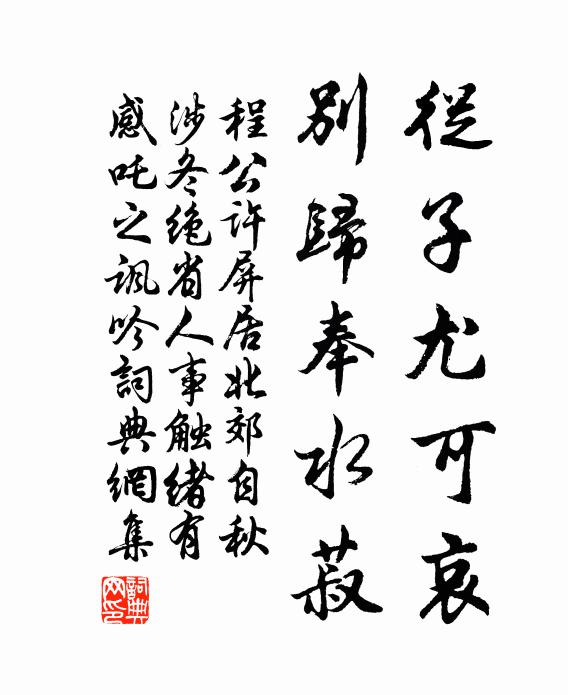 從子尤可哀
別歸奉水菽
程公許屏居北郊自秋
涉冬绝省人事触緒有
感吒之諷吟詞典網集
詞典